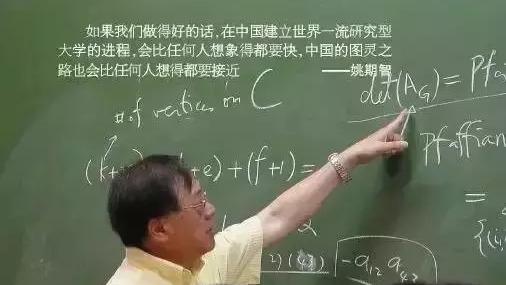 如果我们做得好的话,在中国建立世界一流研究型
大学的进程,会比任何人想象得都要快,中国的图灵之
路也会比任何人想得都要接近 ——姚期智
# of vertices in C
det(A_G) = Pfa
(k+ +e) + (f+1) =
Pfaffian
=
2
2)(43) -a_{12} a_{43}
{(i,